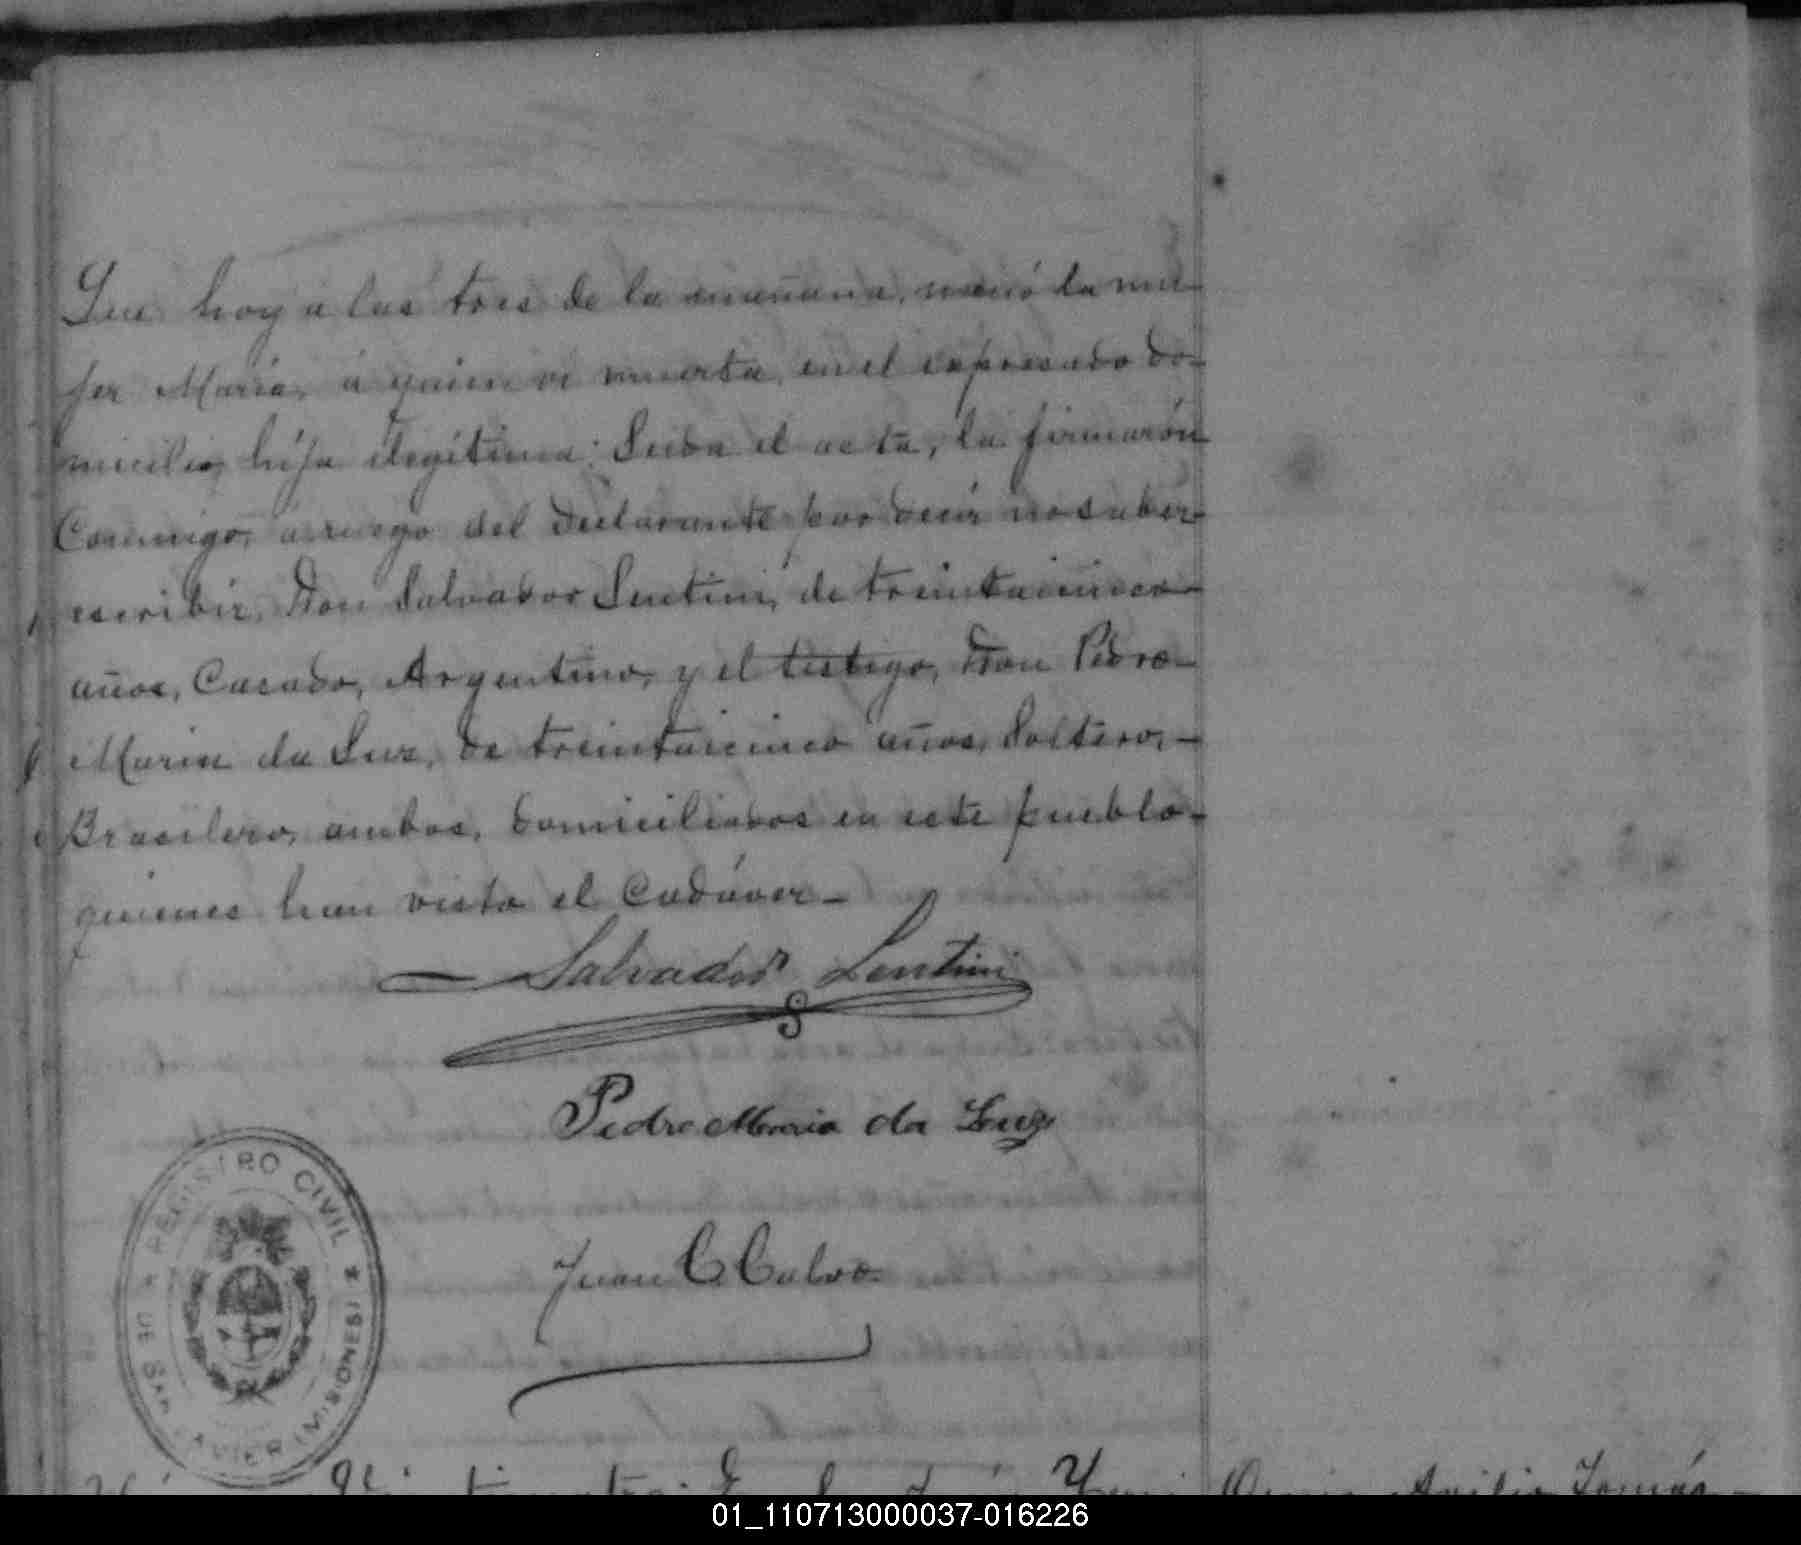 Que hoy a las tres de la mañana, nació la mu-
jer María, a quien vi muerta, en el expresado do-
micilio, hija ilegítima: Leida el acta, la firmarón
Conmigo, a ruego del declarante por decir no saber
escribir, Don Salvador Lentini, de treintaicinco
años, Casado, Argentino, y el testigo, Don Pedro
Maria da Luz, de treintaicinco años, Soltero,-
Brasilero, ambos, domiciliados en este pueblo-
quienes han visto el Cadáver-
Salvador Lentini
Pedro Maria da Luz
Juan C. Calvo
REGISTRO CIVIL
DE SAN JAVIER (MISIONES)
Tomás
01_110713000037-016226